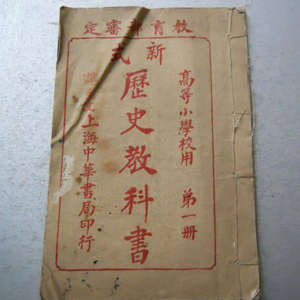 教育部審定
新式
歷史教科書
高等小學校用 第一册
上海中華書局印行